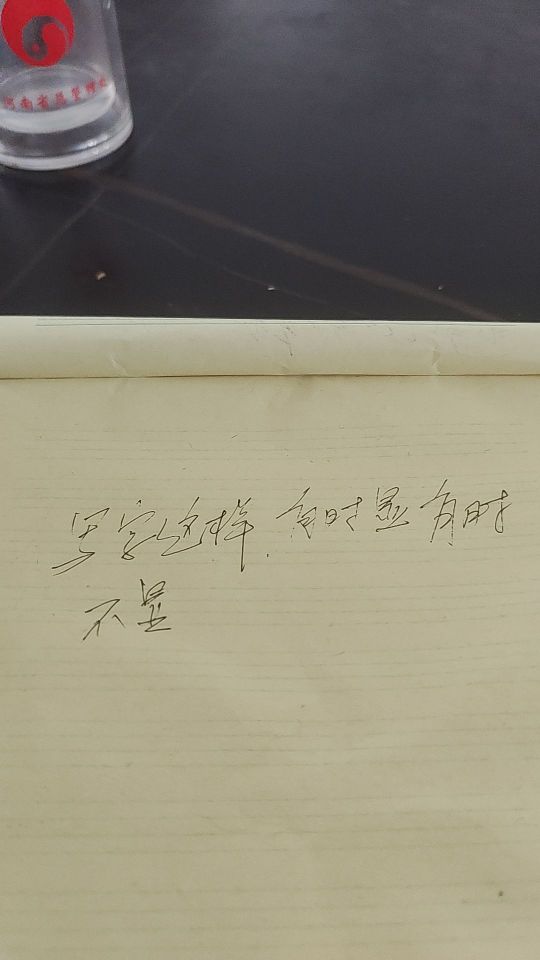 河南省
写字这样.有时显有时
不显